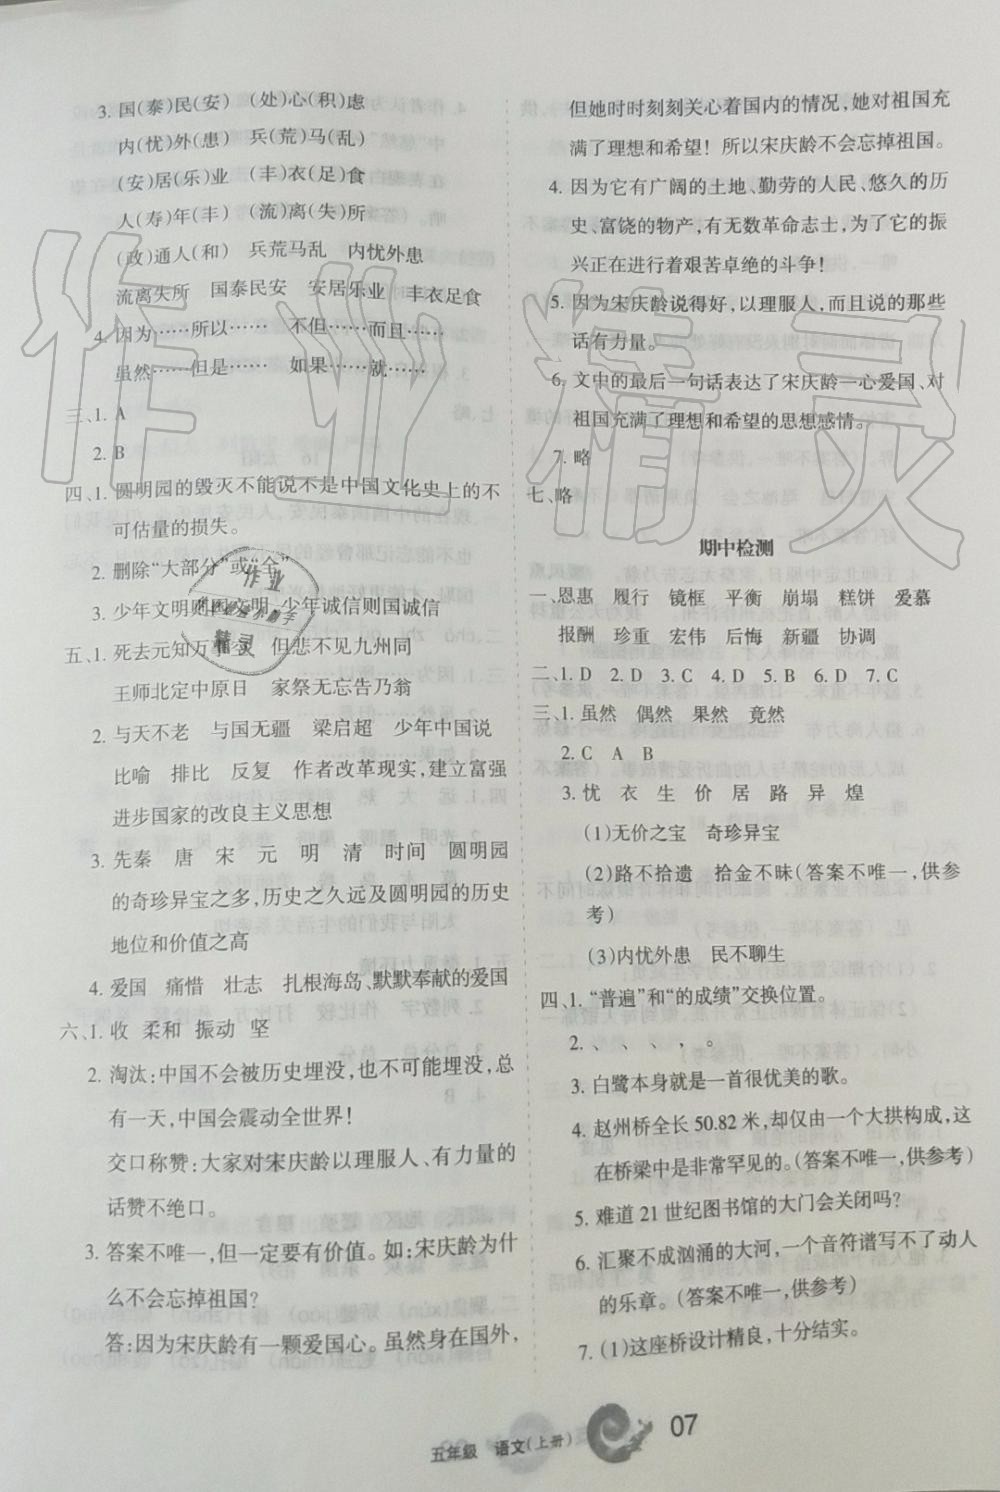 3. 国(泰)民(安) (处)心(积)虑
内(忧)外(患) 兵(荒)马(乱)
(安)居(乐)业 (丰)衣(足)食
人(寿)年(丰) (流)离(失)所
(政)通人(和) 兵荒马乱 内忧外患
流离失所 国泰民安 安居乐业 丰衣足食
4. 因为……所以…… 不但……而且……
虽然……但是…… 如果……就……
三、1. A
2. B
四、1. 圆明园的毁灭不能说不是中国文化史上的不
可估量的损失。
2. 删除“大部分”或“全”
3. 少年文明则国文明,少年诚信则国诚信
五、1. 死去元知万事空 但悲不见九州同
王师北定中原日 家祭无忘告乃翁
2. 与天不老 与国无疆 梁启超 少年中国说
比喻 排比 反复 作者改革现实,建立富强
进步国家的改良主义思想
3. 先秦 唐 宋 元 明 清 时间 圆明园
的奇珍异宝之多,历史之久远及圆明园的历史
地位和价值之高
4. 爱国 痛惜 壮志 扎根海岛、默默奉献的爱国
六、1. 收 柔和 振动 坚
2. 淘汰:中国不会被历史埋没,也不可能埋没,总
有一天,中国会震动全世界!
交口称赞:大家对宋庆龄以理服人、有力量的
话赞不绝口。
3. 答案不唯一,但一定要有价值。如:宋庆龄为什
么不会忘掉祖国?
答:因为宋庆龄有一颗爱国心。虽然身在国外,
但她时时刻刻关心着国内的情况,她对祖国充
满了理想和希望!所以宋庆龄不会忘掉祖国。
4. 因为它有广阔的土地、勤劳的人民、悠久的历
史、富饶的物产,有无数革命志士,为了它的振
兴正在进行着艰苦卓绝的斗争!
5. 因为宋庆龄说得好,以理服人,而且说的那些
话有力量。
6. 文中的最后一句话表达了宋庆龄一心爱国、对
祖国充满了理想和希望的思想感情。
7. 略
七、略
期中检测
一、恩惠 履行 镜框 平衡 崩塌 糕饼 爱慕
报酬 珍重 宏伟 后悔 新疆 协调
二、1. D 2. D 3. C 4. D 5. B 6. D 7. C
三、1. 虽然 偶然 果然 竟然
2. C A B
3. 忧 衣 生 价 居 路 异 煌
(1)无价之宝 奇珍异宝
(2)路不拾遗 拾金不昧(答案不唯一,供参
考)
(3)内忧外患 民不聊生
四、1. “普遍”和“的成绩”交换位置。
2. 、 、 、 , 。
3. 白鹭本身就是一首很优美的歌。
4. 赵州桥全长 50.82 米,却仅由一个大拱构成,这
在桥梁中是非常罕见的。(答案不唯一,供参考)
5. 难道 21 世纪图书馆的大门会关闭吗?
6. 汇聚不成汹涌的大河,一个音符谱写不了动人
的乐章。(答案不唯一,供参考)
7. (1)这座桥设计精良,十分结实。
五年级 语文(上册) 07
作业精灵
作业
精灵